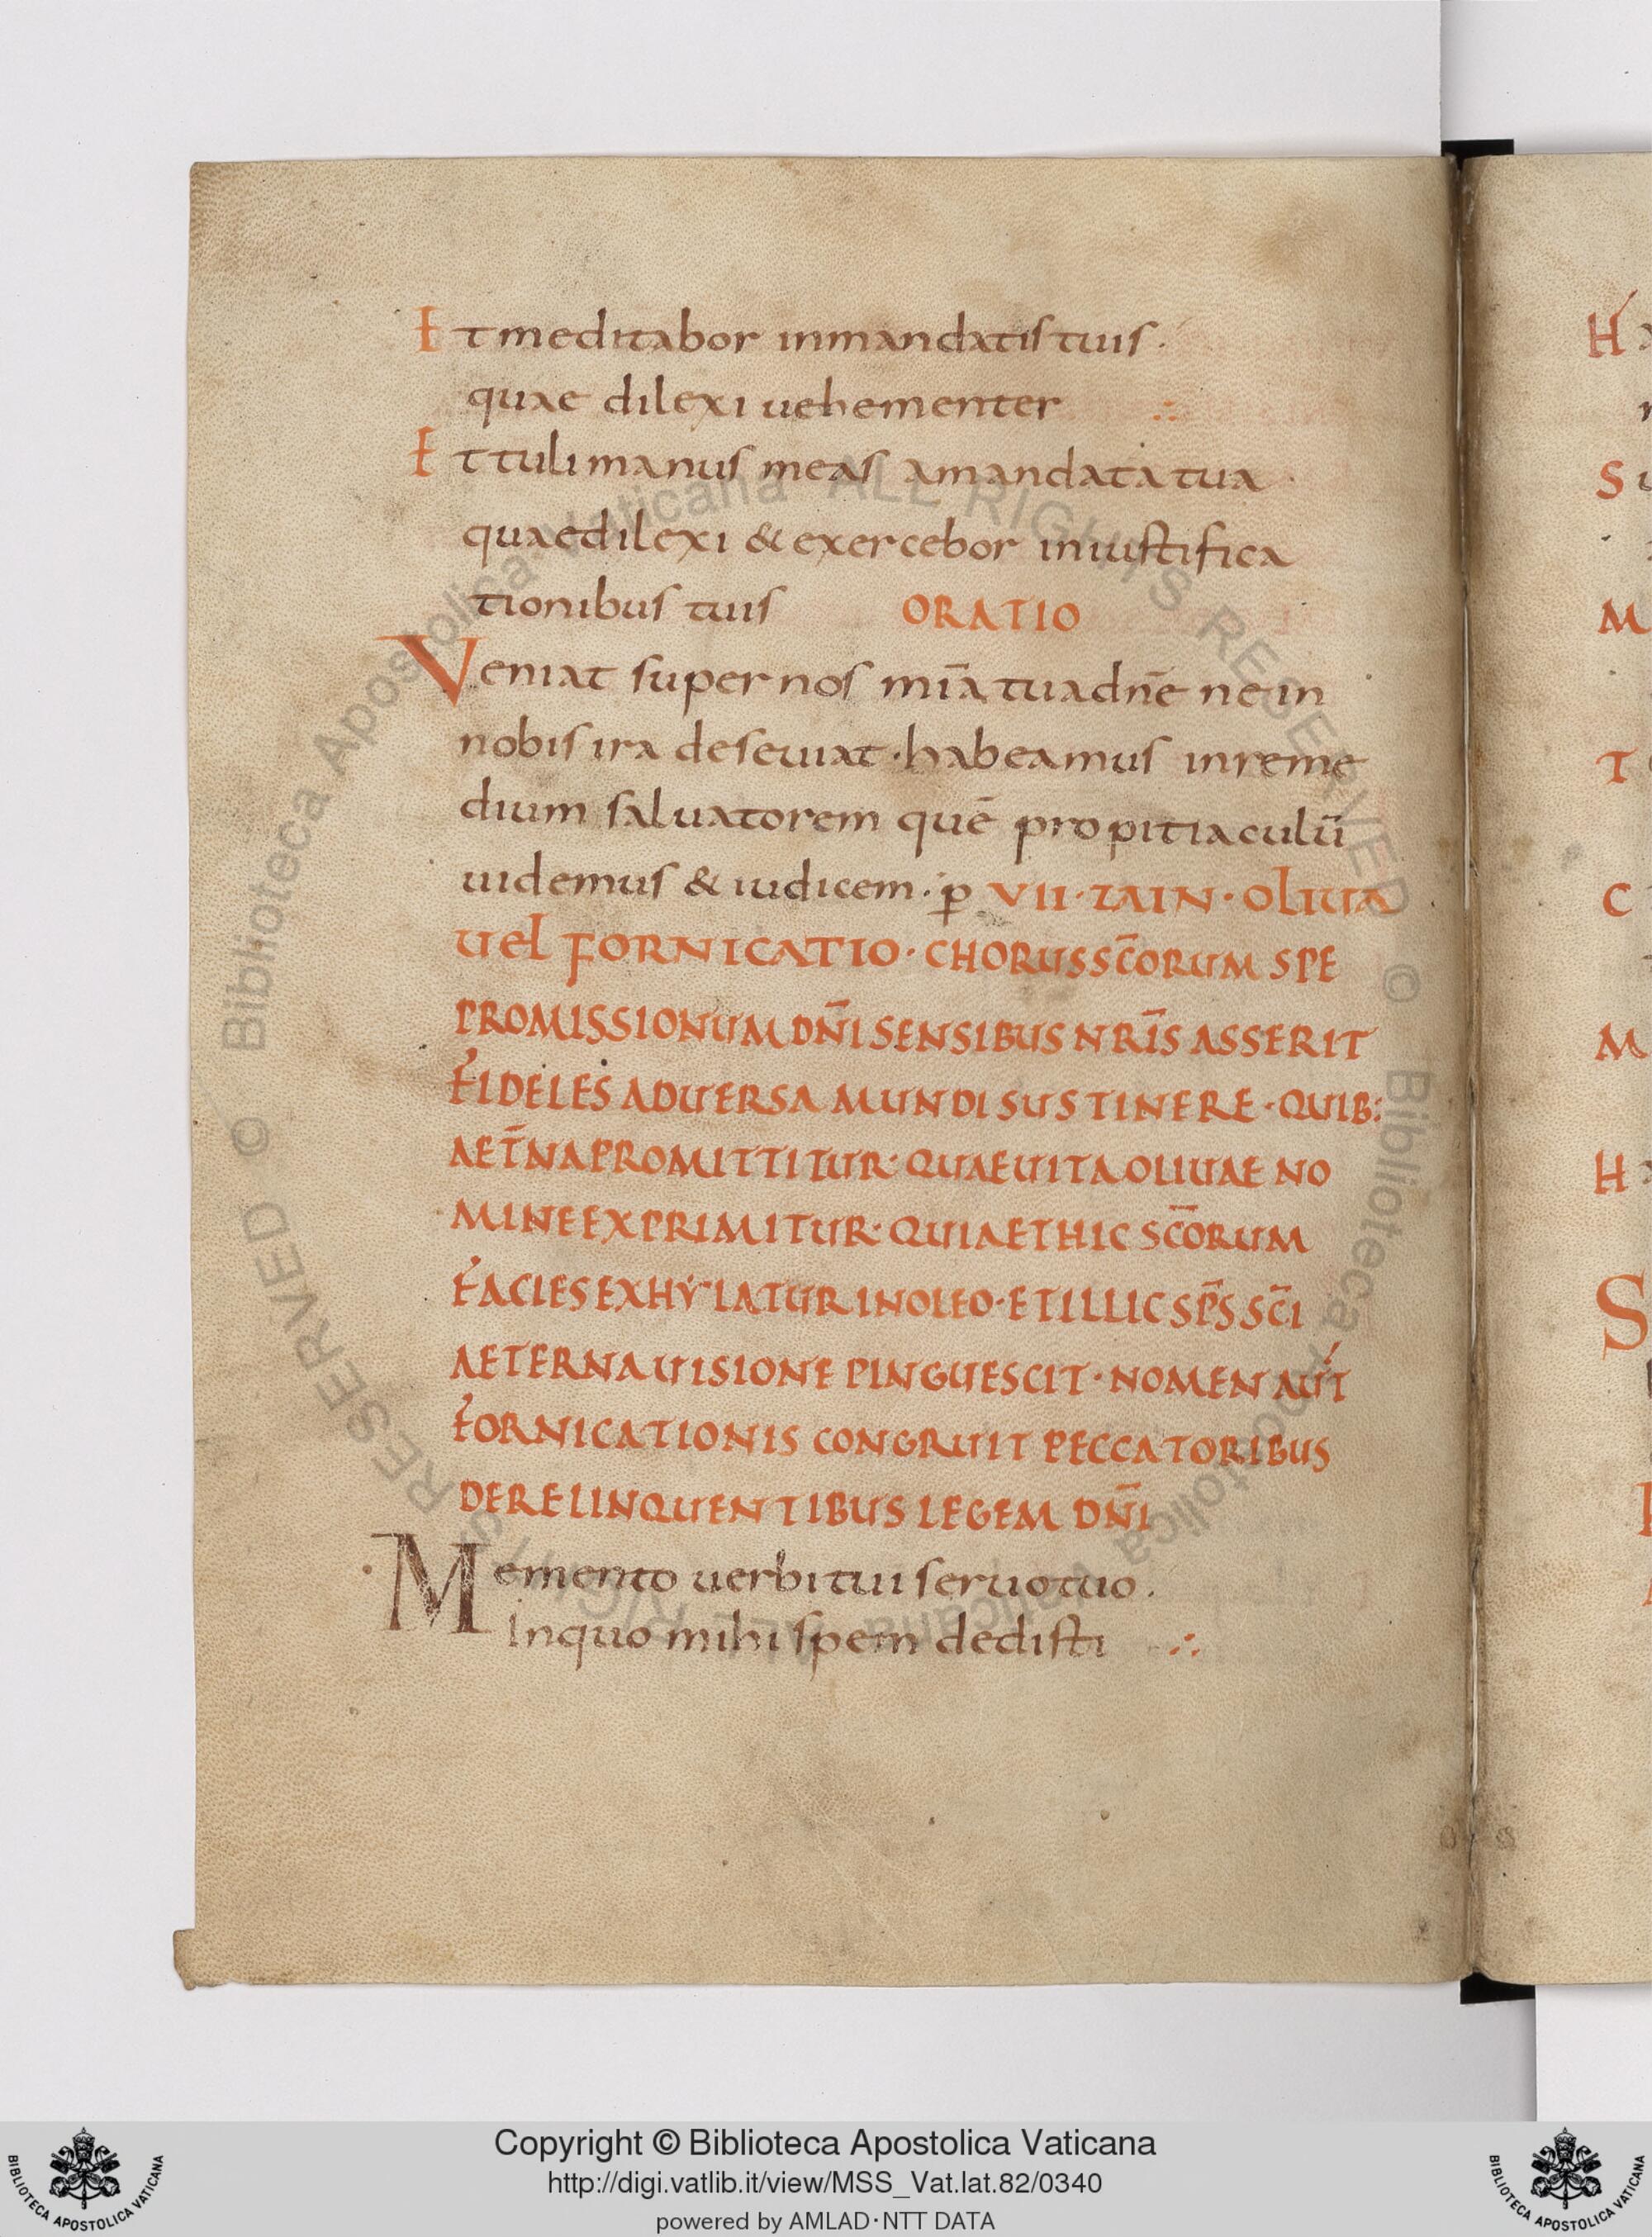 Et meditabor inmandatis tuis·
quae dilexi uehementer ∴
Et tuli manus meas amandata tua·
quaedilexi & exercebor iniustifica
tionibus tuis ORATIO
Veniat super nos mīa tuadn̄e ne in
nobis ira deseuiat·habeamus inreme
dium saluatorem quē propitiaculū
uidemus & iudicem·p̄ VII·ZAIN·OLIUA
uel FORNICATIO·CHORUSSC̄ORUM SPE
PROMISSIONUM DN̄I SENSIBUS NR̄IS ASSERIT
FIDELES ADUERSA MUNDI SUSTINERE·QUIB:
AET̄NA PROMITTITUR·QUAE UITA OLIUAE NO
MINE EXPRIMITUR·QUIA ET HIC SC̄ORUM
FACIES EXHYLATUR IN OLEO·ET ILLIC SP̄S SC̄I
AETERNA UISIONE PINGUESCIT·NOMEN AUT́
FORNICATIONIS CONGRUIT PECCATORIBUS
DERELINQUENTIBUS LEGEM DN̄I
Memento uerbi tui seruo tuo·
Inquo mihi spem dedisti ∴
H
S
M
T
C
M
H
S
Biblioteca Apostolica Vaticana ALL RIGHTS RESERVED ©
Biblioteca Apostolica Vaticana ALL RIGHTS RESERVED ©
Copyright © Biblioteca Apostolica Vaticana
http://digi.vatlib.it/view/MSS_Vat.lat.82/0340
powered by AMLAD·NTT DATA
BIBLIOTECA APOSTOLICA VATICANA
BIBLIOTECA APOSTOLICA VATICANA